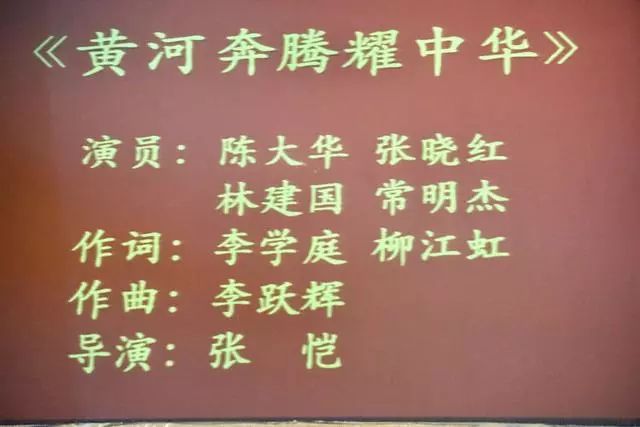 《黄河奔腾耀中华》
演员：陈大华 张晓红
林建国 常明杰
作词：李学庭 柳江虹
作曲：李跃辉
导演：张 恺